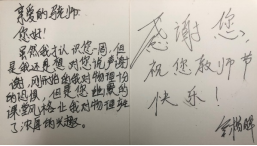 亲爱的老师
您好!
虽然我才认识您一周,但
是我还是想对您说声谢
谢,刚开始的我对物理十分
的恐惧,但是您幽默的
课堂风格让我对物理产生
了浓厚的兴趣。
感谢您,
祝您教师节
快乐!